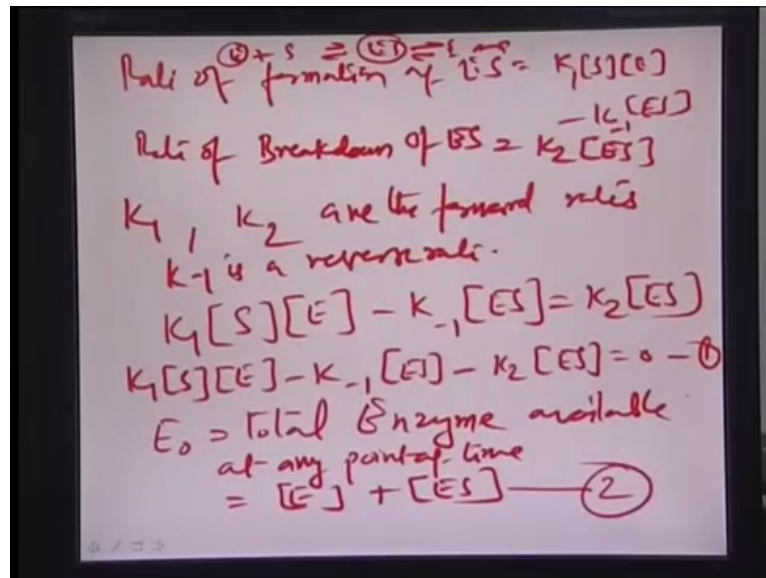 E + S ⇌ ES ⇌ E + P
Rate of formation of ES = K₁[S][E]
- K₋₁[ES]
Rate of Breakdown of ES = K₂[ES]
K₁, K₂ are the forward rates
K-1 is a reverse rate.
K₁[S][E] - K₋₁[ES] = K₂[ES]
K₁[S][E] - K₋₁[ES] - K₂[ES] = 0 - ①
E₀ = Total Enzyme available
at any point of time
= [E] + [ES] — ②